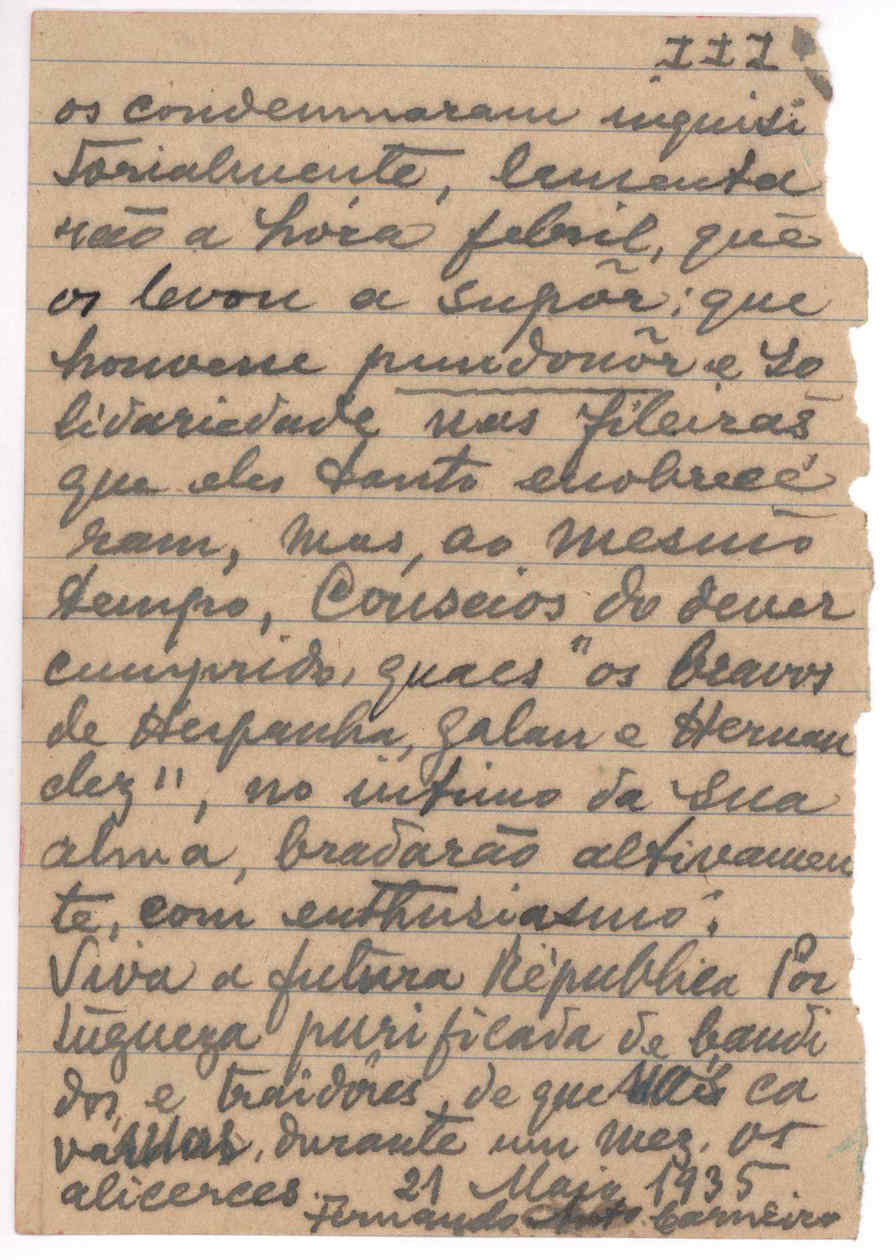 III
os condemnaram inquisi
torialmente, lamenta
rão a hóra febril, que
os levou a supôr; que
houvesse pundonôr e so
lidariedade nas fileiras
que eles tanto enobrecê
ram, mas, ao mesmo
tempo, Conscios do dever
cumprido, quaes "os bravos
de Hespanha, Galan e Hernan
dez", no intimo da sua
alma, bradarão altivamen
te, com enthusiasmo:
Viva a futura Républica Por
tugueza purificada de bandi
dos, e traidôres, de que nós ca
vámos, durante um mez, os
alicerces. 21 Maio 1935
Fernando Carneiro